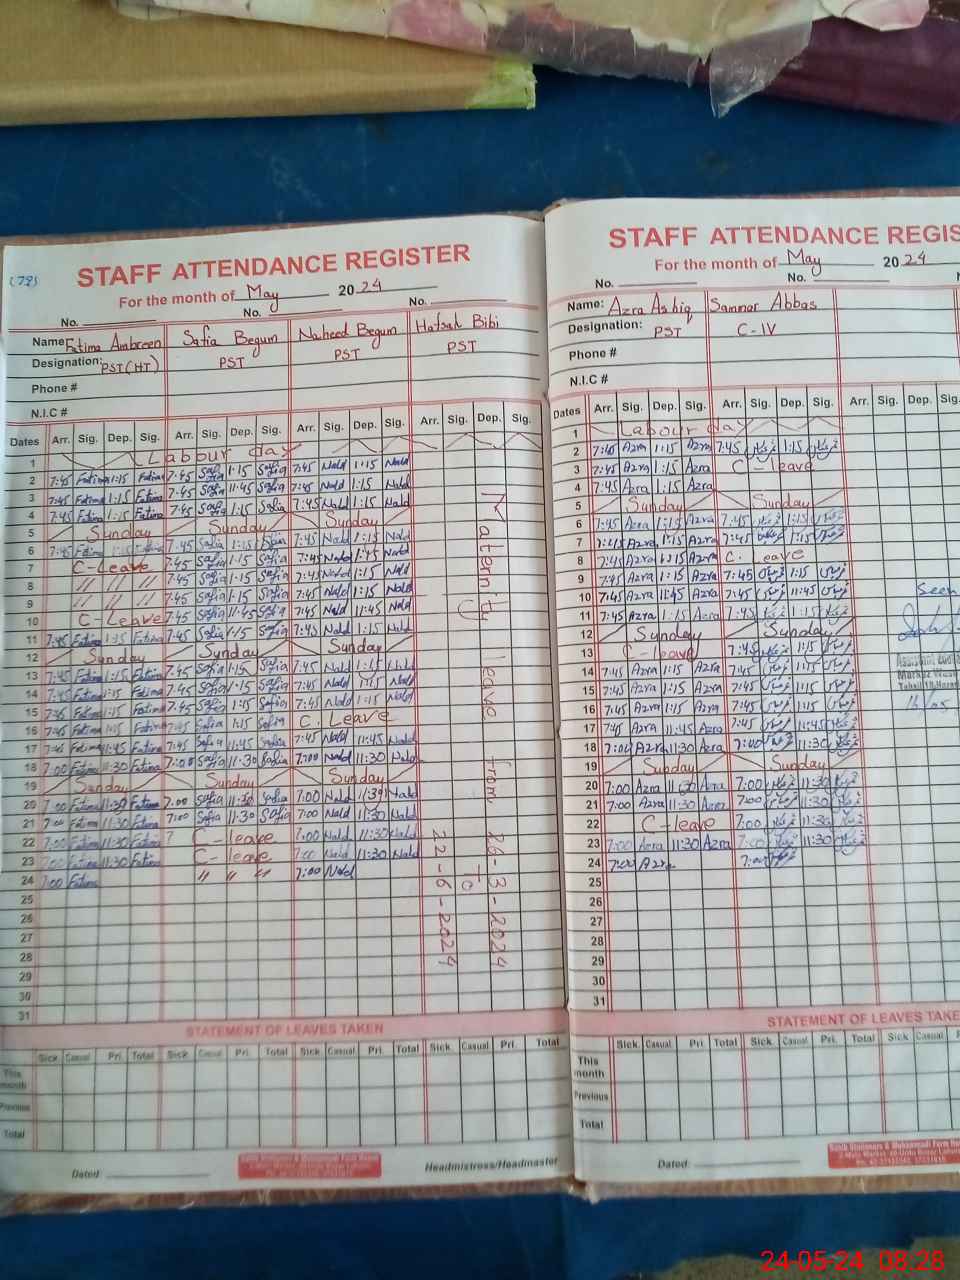 (79)
STAFF ATTENDANCE REGISTER
For the month of May 2024
No. No. No.
Name: Fatima Ambreen Safia Begum Naheed Begum Hafsah Bibi
Designation: PST(HT) PST PST PST
Phone #
N.I.C #
Dates Arr. Sig. Dep. Sig. Arr. Sig. Dep. Sig. Arr. Sig. Dep. Sig. Arr. Sig. Dep. Sig.
1 Labour day
2 7:45 Fatima 1:15 Fatima 7:45 Safia 1:15 Safia 7:45 Nald 1:15 Nald
3 7:45 Fatima 1:15 Fatima 7:45 Safia 11:45 Safia 7:45 Nald 1:15 Nald
4 7:45 Fatima 1:15 Fatima 7:45 Safia 1:15 Safia 7:45 Nald 1:15 Nald
5 Sunday Sunday Sunday
6 7:45 Fatima 1:15 Fatima 7:45 Safia 1:15 Safia 7:45 Nald 1:15 Nald
7 C-Leave 7:45 Safia 1:15 Safia 7:45 Nald Nald
8 // // // 7:45 Safia 1:15 Safia 7:45 Nald 1:15 Nald
9 // // // 7:45 Safia 1:15 Safia 7:45 Nald 1:15 Nald
10 C-Leave 7:45 Safia 11:45 Safia 7:45 Nald 11:45 Nald
11 7:45 Fatima 1:15 Fatima 7:45 Safia 1:15 Safia 7:45 Nald 1:15 Nald
12 Sunday Sunday Sunday
13 7:45 Fatima 1:15 Fatima 7:45 Safia 1:15 Safia 7:45 Nald 1:15 Nald
14 7:45 Fatima 1:15 Fatima 7:45 Safia 1:15 Safia 7:45 Nald 1:15 Nald
15 7:45 Fatima 1:15 Fatima 7:45 Safia 1:15 Safia 7:45 Nald 1:15 Nald
16 7:45 Fatima 1:15 Fatima 7:45 Safia 1:15 Safia C. Leave
17 7:45 Fatima 11:45 Fatima 7:45 Safia 11:45 Safia 7:45 Nald 11:45 Nald
18 7:00 Fatima 11:30 Fatima 7:00 Safia 11:30 Safia 7:00 Nald 11:30 Nald
19 Sunday Sunday Sunday
20 7:00 Fatima 11:30 Fatima 7:00 Safia 11:30 Safia 7:00 Nald 11:30 Nald
21 7:00 Fatima 11:30 Fatima 7:00 Safia 11:30 Safia 7:00 Nald 11:30 Nald
22 7:00 Fatima 11:30 Fatima ? C - leave 7:00 Nald 11:30 Nald
23 7:00 Fatima 11:30 Fatima C - leave 7:00 Nald 11:30 Nald
24 7:00 Fatima // // // 7:00 Nald
25
26
27
28
29
30
31
Maternity leave from 26-3-2024
To
22-6-2024
STATEMENT OF LEAVES TAKEN
Sick Casual Pri. Total Sick Casual Pri. Total Sick Casual Pri. Total Sick Casual Pri. Total
This month
Previous
Total
Dated: Headmistress/Headmaster
STAFF ATTENDANCE REGIS
For the month of May 2024
No. No.
Name: Azra Ashiq Sammar Abbas
Designation: PST C-IV
Phone #
N.I.C #
Dates Arr. Sig. Dep. Sig. Arr. Sig. Dep. Sig. Arr. Sig. Dep. Sig.
1 Labour day
2 7:45 Azra 1:15 Azra 7:45 1:15
3 7:45 Azra 1:15 Azra C - leave
4 7:45 Azra 1:15 Azra
5 Sunday Sunday
6 7:45 Azra 1:15 Azra 7:45 1:15
7 7:45 Azra 1:15 Azra 7:45 1:15
8 7:45 Azra 1:15 Azra C. leave
9 7:45 Azra 1:15 Azra 7:45 1:15
10 7:45 Azra 11:45 Azra 7:45 11:45
11 7:45 Azra 1:15 Azra 7:45 1:15
12 Sunday Sunday
13 C-leave 7:45 1:15
14 7:45 Azra 1:15 Azra 7:45 1:15
15 7:45 Azra 1:15 Azra 7:45 1:15
16 7:45 Azra 1:15 Azra 7:45 1:15
17 7:45 Azra 11:45 Azra 7:45 11:45
18 7:00 Azra 11:30 Azra 7:00 11:30
19 Sunday Sunday
20 7:00 Azra 11:30 Azra 7:00 11:30
21 7:00 Azra 11:30 Azra 7:00 11:30
22 C-leave 7:00 11:30
23 7:00 Azra 11:30 Azra 7:00 11:30
24 7:00 Azra 7:00
25
26
27
28
29
30
31
Seen
STATEMENT OF LEAVES TAKE
Sick. Casual. Pri. Total Sick. Casual. Pri. Total Sick Casual
This month
Previous
Total
Dated:
24-05-24 08:28